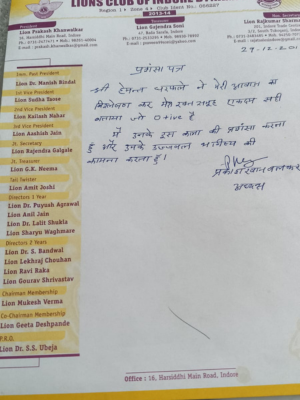 LIONS CLUB OF INDORE
Region 1 • Zone 4 • Club
2013-14
President
Lion Prakash Khanwalkar
16, Harsiddhi Main Road, Indore
Secretary
Lion Rajendra Soni
Lion Rajkumar Sharma
29-12-201
प्रशंसा पत्र
श्री हेमन्त ने मेरी आवाज का
विश्लेषण कर मेरा रक्त समूह एकदम सही
बताया जो O +ive है
मैं उनके इस कला की प्रशंसा करता
हूँ और उनके उज्जवल भविष्य की
कामना करता हूँ।
प्रकाश खानवलकर
अध्यक्ष
Imm. Past President
Lion Dr. Manish Bindal
1st Vice President
Lion Sudha Sasse
2nd Vice President
Lion Kailash Nahar
3rd Vice President
Lion Aashish Jain
Jt. Secretary
Lion Rajendra Galgale
Jt. Treasurer
Lion G.K. Neema
Tail Twister
Lion Amit Joshi
Directors 1 Year
Lion Dr. Puyush Agrawal
Lion Anil Jain
Lion Dr. Lalit Shukla
Lion Sharyu Waghmare
Directors 2 Years
Lion Dr. S. Bandwal
Lion Lekhraj Chouhan
Lion Ravi Raka
Lion Gourav Shrivastav
Chairman Membership
Lion Mukesh Verma
Co-Chairman Membership
Lion Geeta Deshpande
P.R.O.
Lion Dr. S.S. Ubeja
Office : 16, Harsiddhi Main Road, Indore